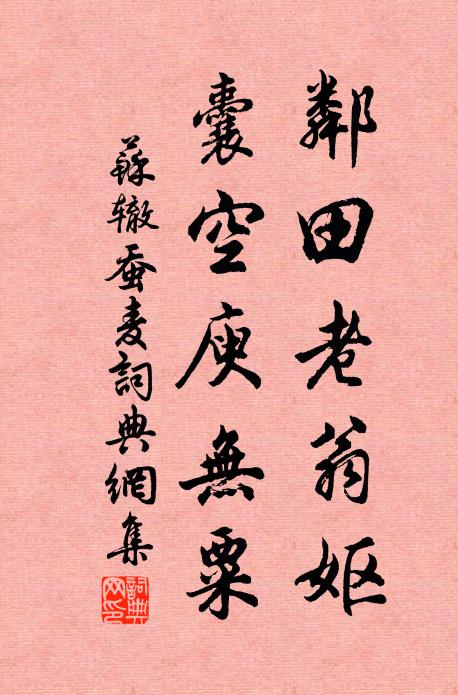 鄰田老翁嫗
囊空庾無粟
蘇辙蚕麦詞典網集
詞典網印